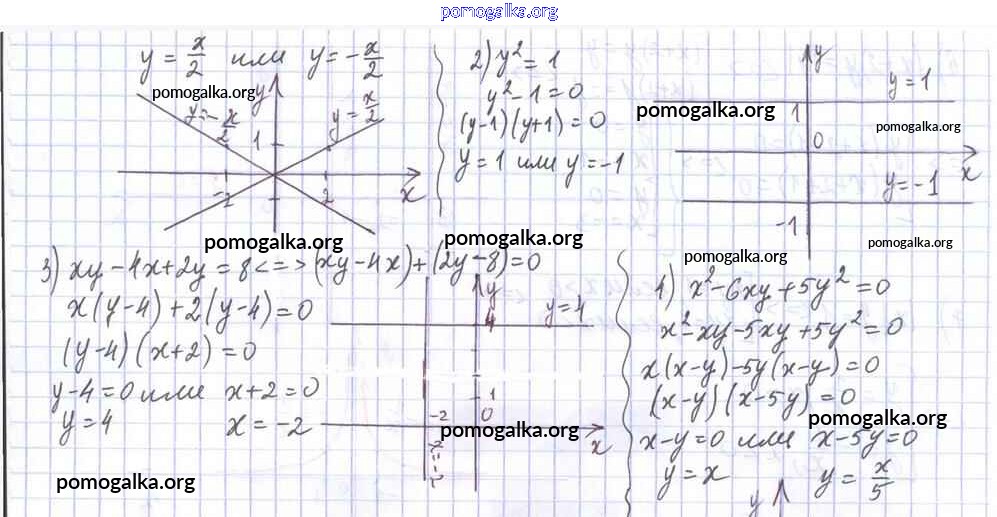 pomogalka.org
y = x/2 или y = -x/2
pomogalka.org
y
y = -x/2
y = x/2
1
x
-2
2
2) y² = 1
y² - 1 = 0
(y-1)(y+1) = 0
y = 1 или y = -1
y
y = 1
pomogalka.org
1
pomogalka.org
0
x
y = -1
-1
pomogalka.org
pomogalka.org
pomogalka.org
3) xy - 4x + 2y = 8 <=> (xy - 4x) + (2y - 8) = 0
x(y-4) + 2(y-4) = 0
(y-4)(x+2) = 0
y-4 = 0 или x+2 = 0
y = 4 x = -2
y
y = 4
4
1
-2
0
pomogalka.org
x
pomogalka.org
4) x² - 6xy + 5y² = 0
x² - xy - 5xy + 5y² = 0
x(x-y) - 5y(x-y) = 0
(x-y)(x-5y) = 0
pomogalka.org
x-y = 0 или x-5y = 0
y = x y = x/5
y